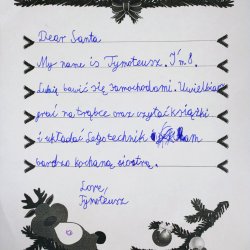 Dear Santa
My name is Tymoteusz. I'm 8.
Lubię bawić się samochodami. Uwielbiam
grać na trąbce oraz czytać książki
i układać Lego technik i mam
bardzo kochaną siostrę.
Love,
Tymoteusz